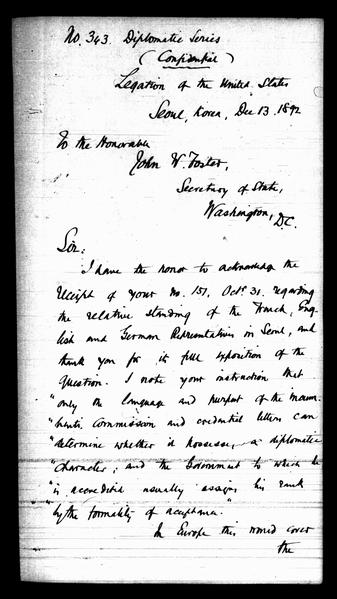 No. 343. Diplomatic Series
(Confidential)
Legation of the United States
Seoul, Korea, Dec 13. 1892
To the Honorable
John W. Foster,
Secretary of State,
Washington, D.C.
Sir:
I have the honor to acknowledge the
receipt of your No. 151, Octo. 31. regarding
the relative standing of the French, Eng-
lish and German Representatives in Seoul, and
thank you for its full exposition of the
question. I note your instruction that
"only the language and purport of the incum-
"bents commission and credential letters can
"determine whether it possesses, a diplomatic
"character; and the Government to which he
"is accredited usually assigns his rank
"by the formality of acceptance."
In Europe this would cover
the